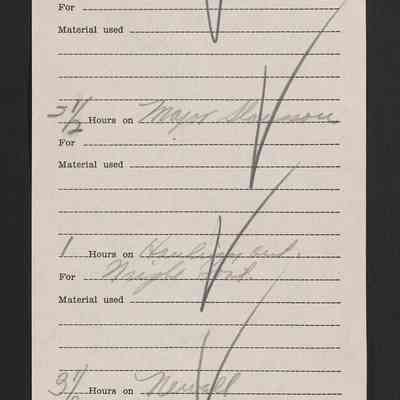 For
Material used
3 1/2 Hours on Major
For
Material used
1 Hours on Hauling out
For Wright
Material used
3 1/2 Hours on Newell